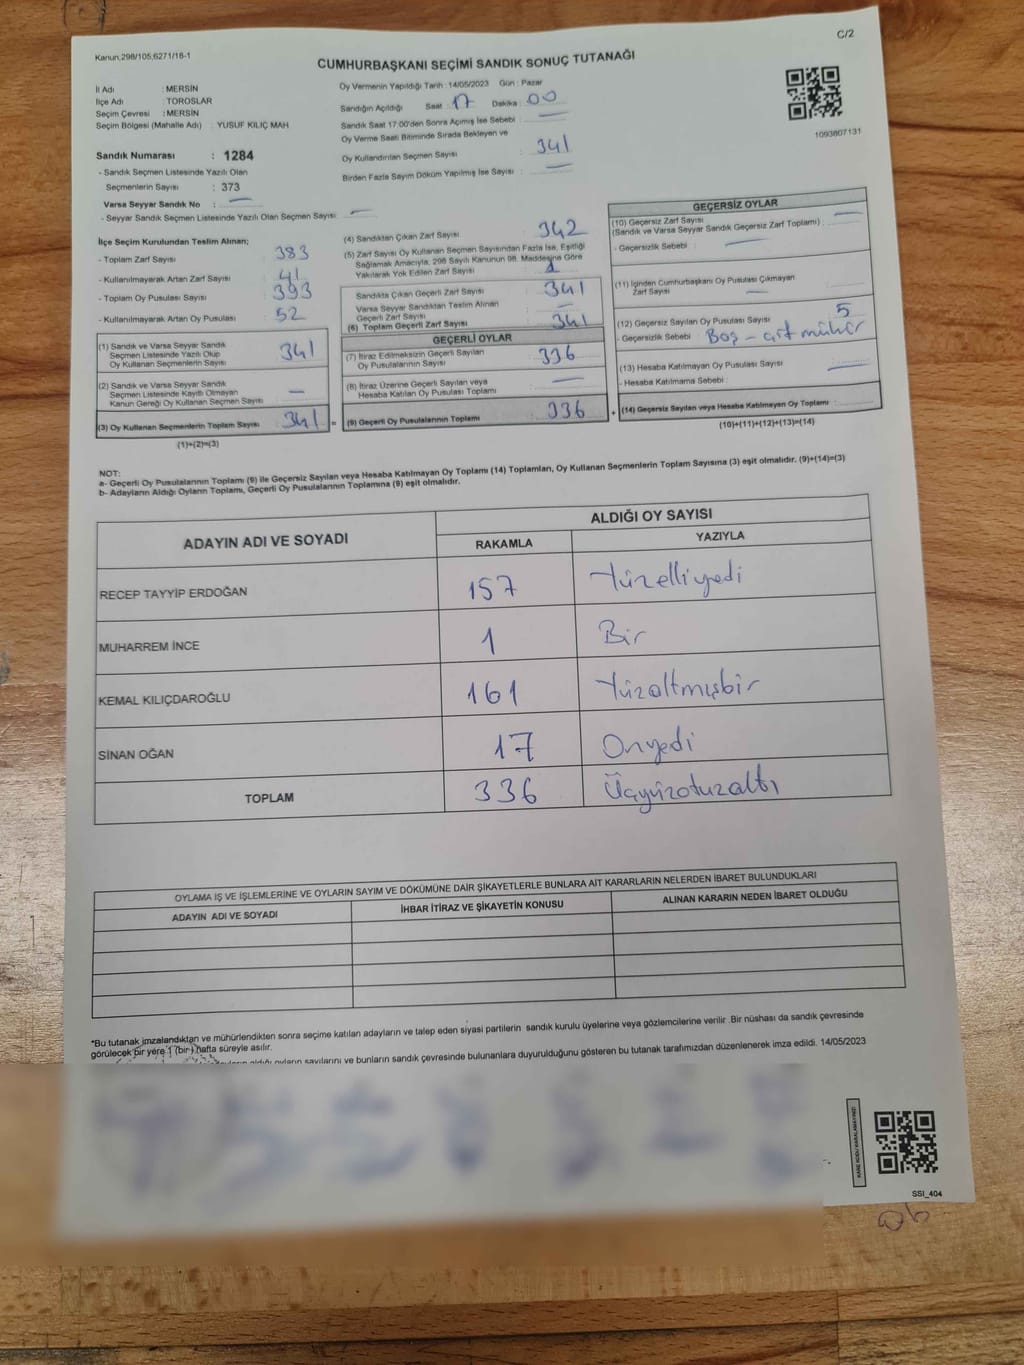 Kanun;298/105;6271/16-1
C/2
CUMHURBAŞKANI SEÇİMİ SANDIK SONUÇ TUTANAĞI
İl Adı : MERSİN
İlçe Adı : TOROSLAR
Seçim Çevresi : MERSİN
Seçim Bölgesi (Mahalle Adı) : YUSUF KILIÇ MAH
Sandık Numarası : 1284
- Sandık Seçmen Listesinde Yazılı Olan
Seçmenlerin Sayısı : 373
Varsa Seyyar Sandık No : —
- Seyyar Sandık Seçmen Listesinde Yazılı Olan Seçmen Sayısı —
Oy Vermenin Yapıldığı Tarih : 14/05/2023 Gün : Pazar
Sandığın Açıldığı Saat : 17 Dakika : 00
Sandık Saat 17:00'den Sonra Açımış İse Sebebi : —
Oy Verme Saati Bitiminde Sırada Bekleyen ve
Oy Kullandırılan Seçmen Sayısı : 341
Birden Fazla Sayım Döküm Yapılmış İse Sayısı : —
1093807131
İlçe Seçim Kurulundan Teslim Alınan;
- Toplam Zarf Sayısı 383
- Kullanılmayarak Artan Zarf Sayısı 41
- Toplam Oy Pusulası Sayısı 393
- Kullanılmayarak Artan Oy Pusulası 52
(1) Sandık ve Varsa Seyyar Sandık
Seçmen Listesinde Yazılı Olup
Oy Kullanan Seçmenlerin Sayısı 341
(2) Sandık ve Varsa Seyyar Sandık
Seçmen Listesinde Kayıtlı Olmayan
Kanun Gereği Oy Kullanan Seçmen Sayısı —
(3) Oy Kullanan Seçmenlerin Toplam Sayısı 341 =
(1)+(2)=(3)
(4) Sandıktan Çıkan Zarf Sayısı 342
(5) Zarf Sayısı Oy Kullanan Seçmen Sayısından Fazla İse, Eşitliği
Sağlamak Amacıyla, 298 Sayılı Kanunun 98. Maddesine Göre
Yakılarak Yok Edilen Zarf Sayısı 1
Sandıkta Çıkan Geçerli Zarf Sayısı 341
Varsa Seyyar Sandıktan Teslim Alınan
Geçerli Zarf Sayısı —
(6) Toplam Geçerli Zarf Sayısı 341
GEÇERLİ OYLAR
(7) İtiraz Edilmeksizin Geçerli Sayılan
Oy Pusulalarının Sayısı 336
(8) İtiraz Üzerine Geçerli Sayılan veya
Hesaba Katılan Oy Pusulası Toplamı —
(9) Geçerli Oy Pusulalarının Toplamı 336 +
GEÇERSİZ OYLAR
(10) Geçersiz Zarf Sayısı —
(Sandık ve Varsa Seyyar Sandık Geçersiz Zarf Toplamı)
- Geçersizlik Sebebi : —
(11) İçinden Cumhurbaşkanı Oy Pusulası Çıkmayan
Zarf Sayısı —
(12) Geçersiz Sayılan Oy Pusulası Sayısı 5
- Geçersizlik Sebebi Boş - çift mühür
(13) Hesaba Katılmayan Oy Pusulası Sayısı —
- Hesaba Katılmama Sebebi
(14) Geçersiz Sayılan veya Hesaba Katılmayan Oy Toplamı :
(10)+(11)+(12)+(13)=(14)
NOT:
a- Geçerli Oy Pusulalarının Toplamı (9) ile Geçersiz Sayılan veya Hesaba Katılmayan Oy Toplamı (14) Toplamları, Oy Kullanan Seçmenlerin Toplam Sayısına (3) eşit olmalıdır. (9)+(14)=(3)
b- Adayların Aldığı Oyların Toplamı, Geçerli Oy Pusulalarının Toplamına (9) eşit olmalıdır.
ADAYIN ADI VE SOYADI
ALDIĞI OY SAYISI
RAKAMLA YAZIYLA
RECEP TAYYİP ERDOĞAN 157 Yüzelliyedi
MUHARREM İNCE 1 Bir
KEMAL KILIÇDAROĞLU 161 Yüzaltmışbir
SİNAN OĞAN 17 Onyedi
TOPLAM 336 Üçyüzotuzaltı
OYLAMA İŞ VE İŞLEMLERİNE VE OYLARIN SAYIM VE DÖKÜMÜNE DAİR ŞİKAYETLERLE BUNLARA AİT KARARLARIN NELERDEN İBARET BULUNDUKLARI
ADAYIN ADI VE SOYADI İHBAR İTİRAZ VE ŞİKAYETİN KONUSU ALINAN KARARIN NEDEN İBARET OLDUĞU
*Bu tutanak imzalandıktan ve mühürlendikten sonra seçime katılan adayların ve talep eden siyasi partilerin sandık kurulu üyelerine veya gözlemcilerine verilir. Bir nüshası da sandık çevresinde
görülecek bir yere 1 (bir) hafta süreyle asılır.
aldığı oyların sayılarını ve bunların sandık çevresinde bulunanlara duyurulduğunu gösteren bu tutanak tarafımızdan düzenlenerek imza edildi. 14/05/2023
SSI_404